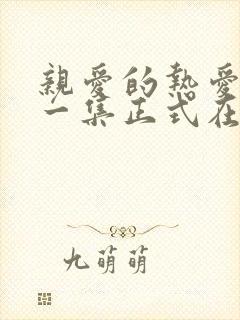 親愛的熱愛
一集正式在
九萌萌